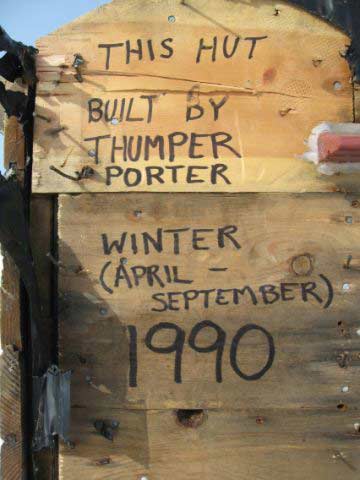 THIS HUT
BUILT BY
THUMPER
PORTER
WINTER
(APRIL -
SEPTEMBER)
1990